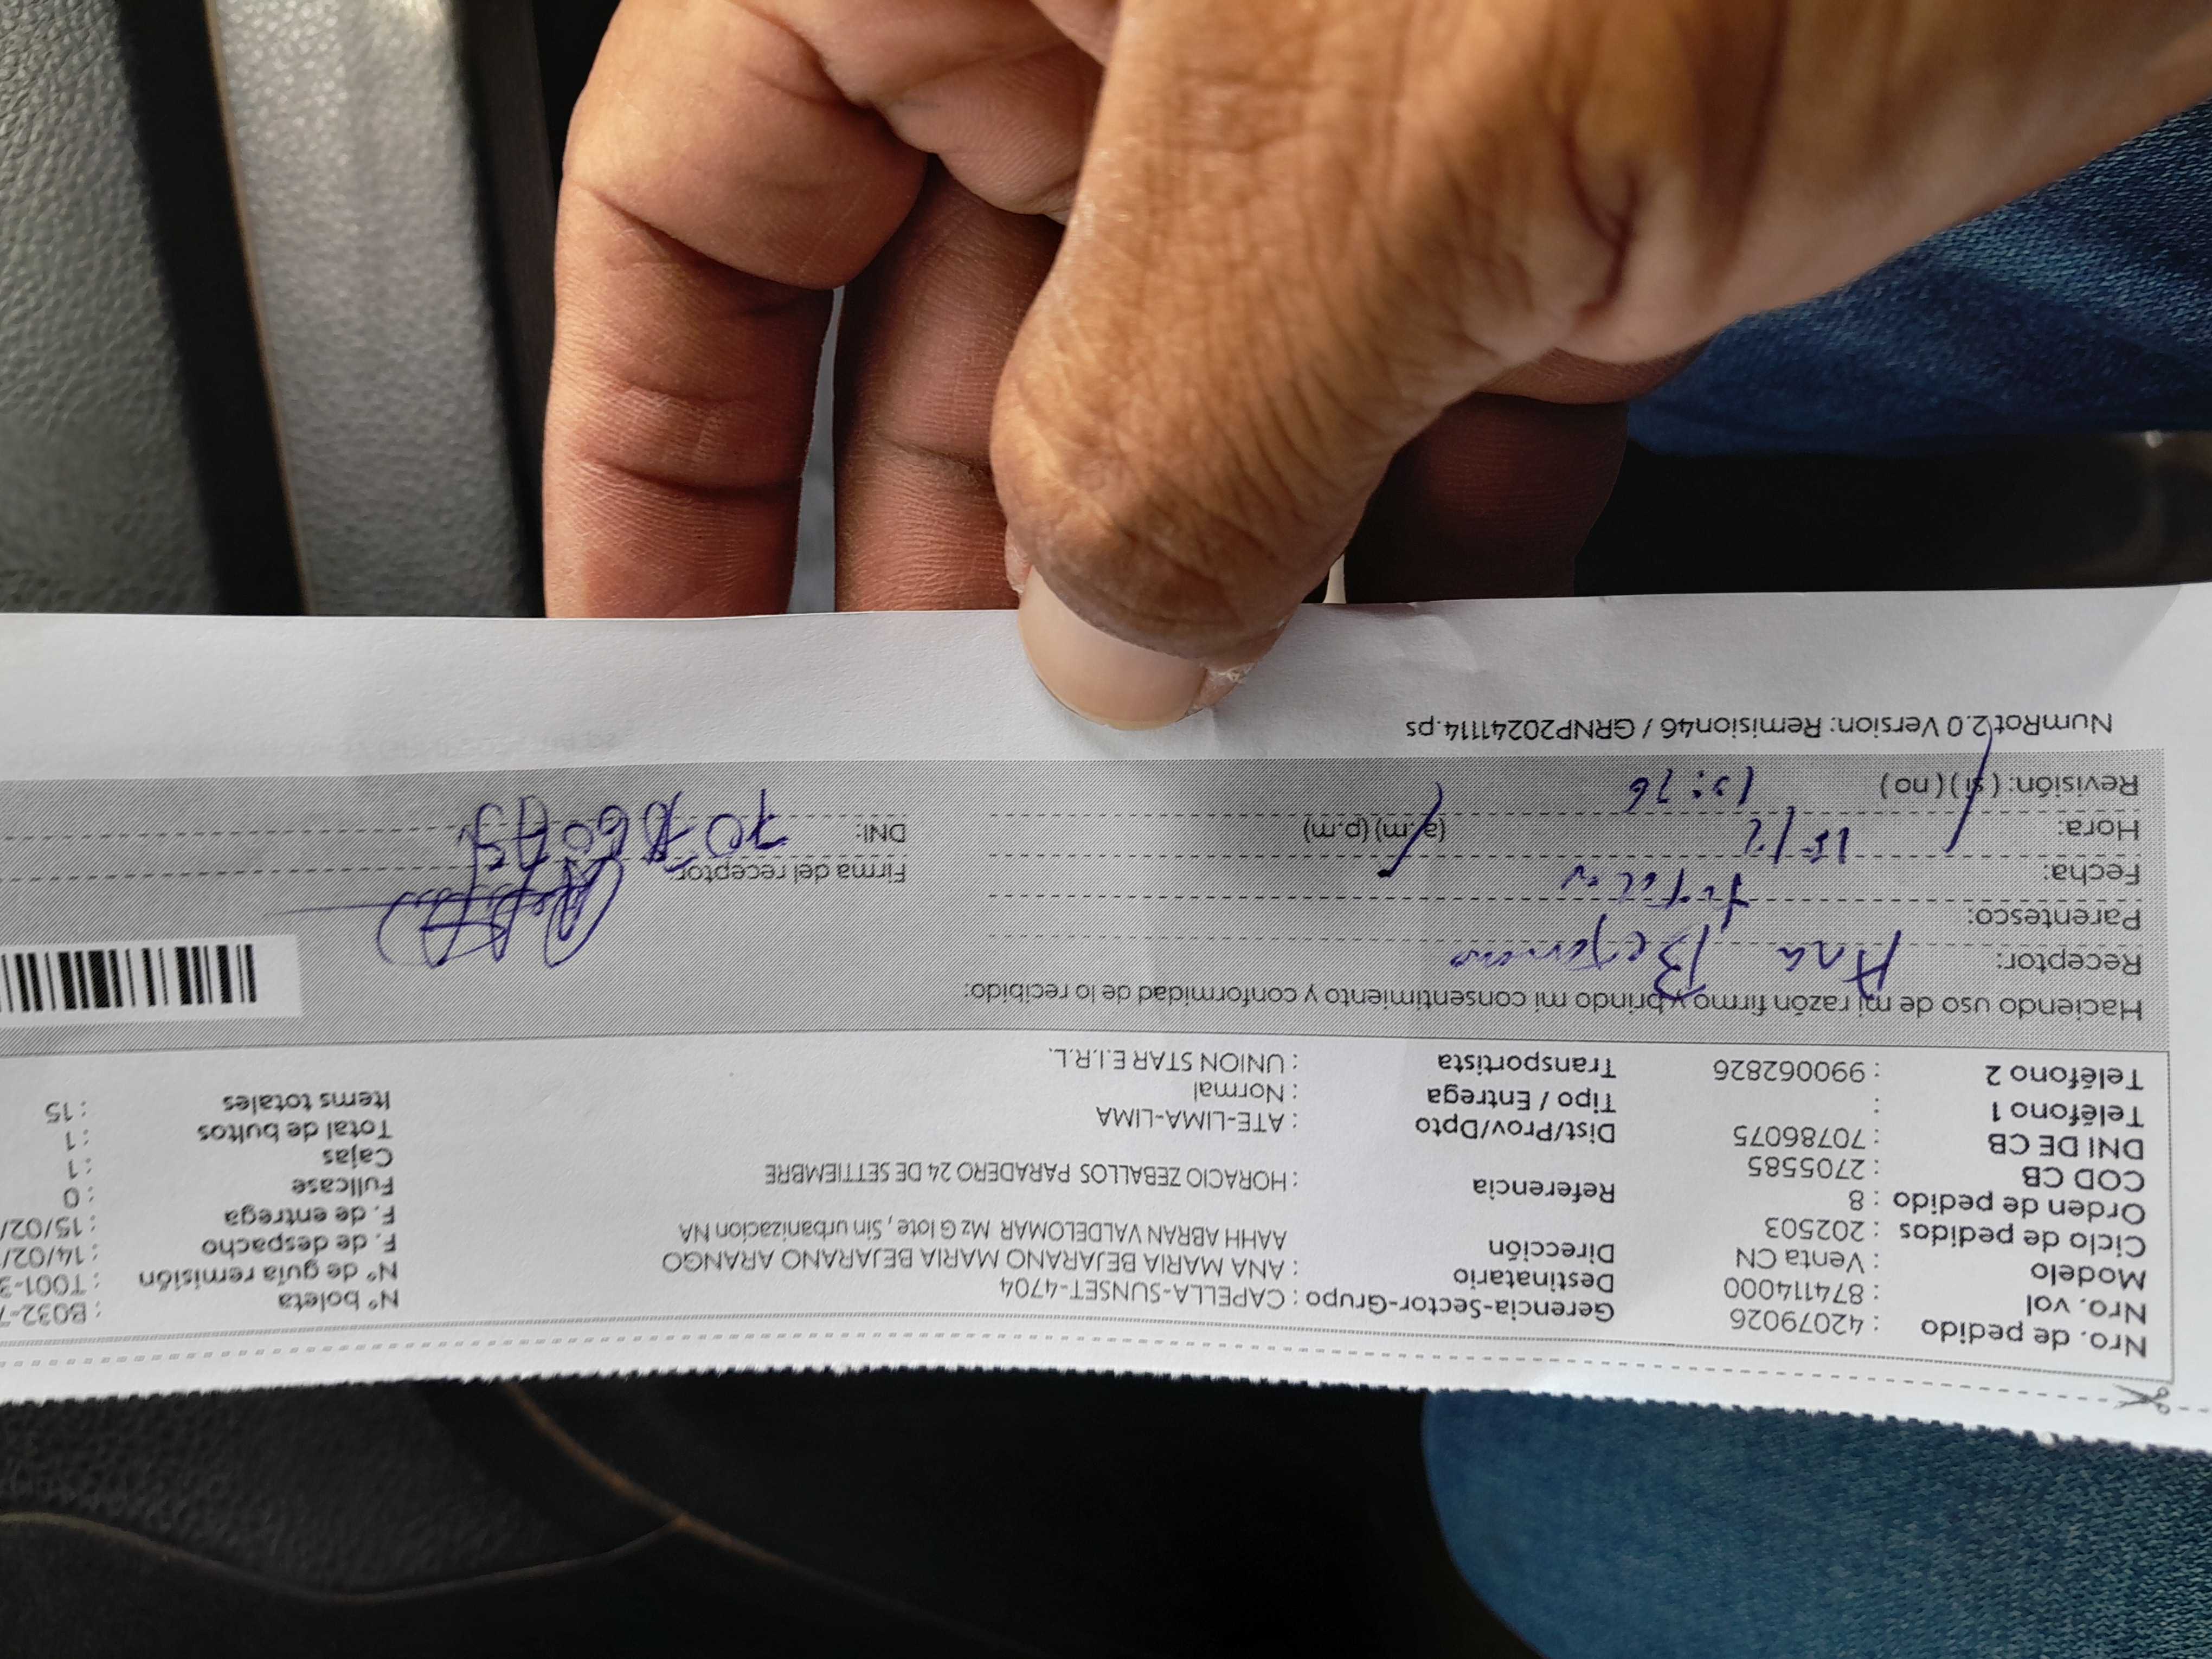 Nro. de pedido : 42079026 Gerencia-Sector-Grupo : CAPELLA-SUNSET-4704 Nº boleta : B032-7
Nro. vol : 874114000 Destinatario : ANA MARIA BEJARANO MARIA BEJARANO ARANGO Nº de guía remisión : T001-3
Modelo : Venta CN Dirección AAHH ABRAN VALDELOMAR Mz G lote , Sin urbanizacion NA F. de despacho : 14/02/
Ciclo de pedidos : 202503 F. de entrega : 15/02/
Orden de pedido : 8 Referencia : HORACIO ZEBALLOS PARADERO 24 DE SETTIEMBRE Fullcase : 0
COD CB : 2705585 Cajas : 1
DNI DE CB : 70786075 Dist/Prov/Dpto : ATE-LIMA-LIMA Total de bultos : 1
Teléfono 1 : Tipo / Entrega : Normal Items totales : 15
Teléfono 2 : 990062826 Transportista : UNION STAR E.I.R.L.
Haciendo uso de mi razón firmo y brindo mi consentimiento y conformidad de lo recibido:
Receptor: Ana Bejarano
Parentesco:
Fecha: 15/2 Firma del receptor:
Hora: (a.m) (p.m) DNI:
Revisión: ( si ) ( no )
NumRot2.0 Version: Remision46 / GRNP20241114.ps